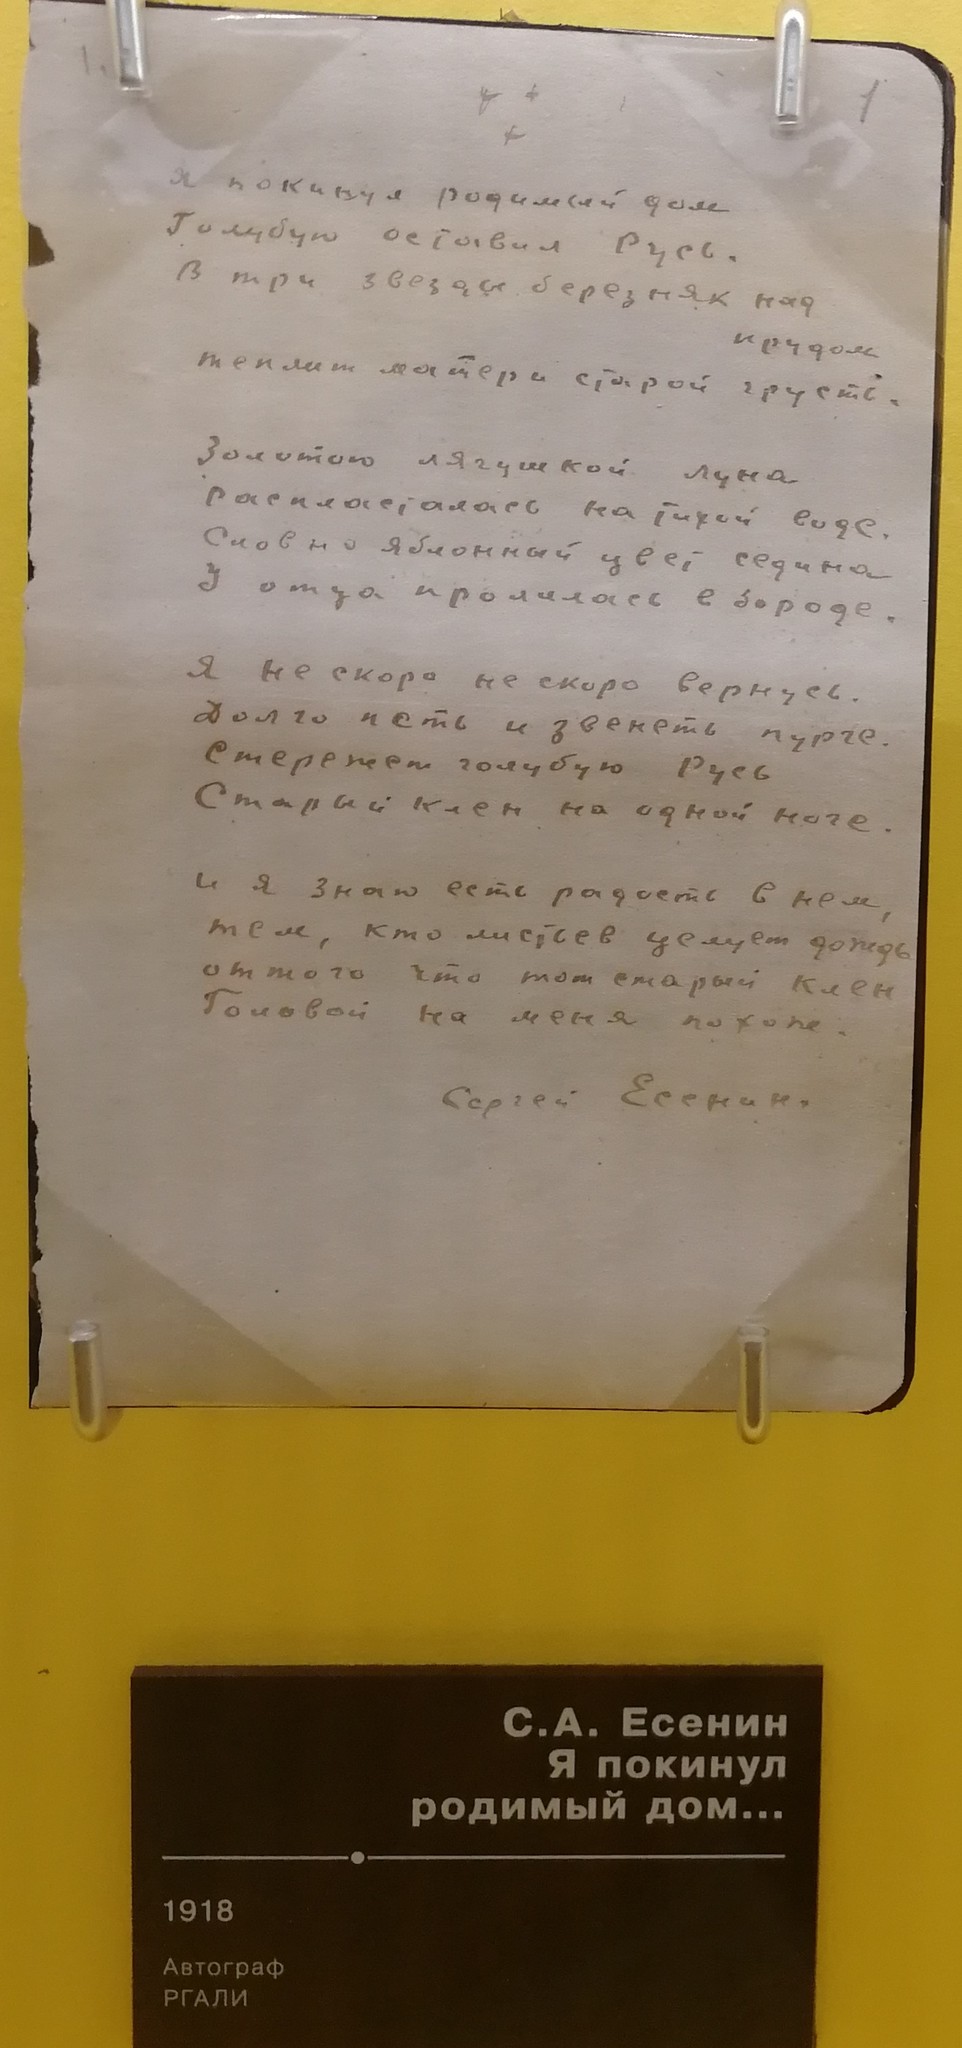 1
Я покинул родимый дом
Голубую оставил Русь.
В три звезды березняк над
прудом
теплит матери старой грусть.
Золотою лягушкой луна
распласталась на тихой воде.
Словно яблонный цвет седина
У отца пролилась в бороде.
Я не скоро не скоро вернусь.
Долго петь и звенеть пурге.
Стережет голубую Русь
Старый клен на одной ноге.
И я знаю есть радость в нем,
тем, кто листьев целует дождь
оттого что тот старый клен
Головой на меня похож.
Сергей Есенин.
С.А. Есенин
Я покинул
родимый дом...
1918
Автограф
РГАЛИ